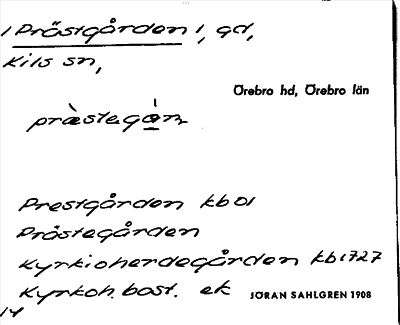 /Prästgården/, gd,
Kils sn,
Örebro hd, Örebro län
præ̀stegá̱n
Prestgården kb 01
Prästegården
Kyrkioherdegården kb 1727
Kyrkoh. bost. ek
JÖRAN SAHLGREN 1908
14